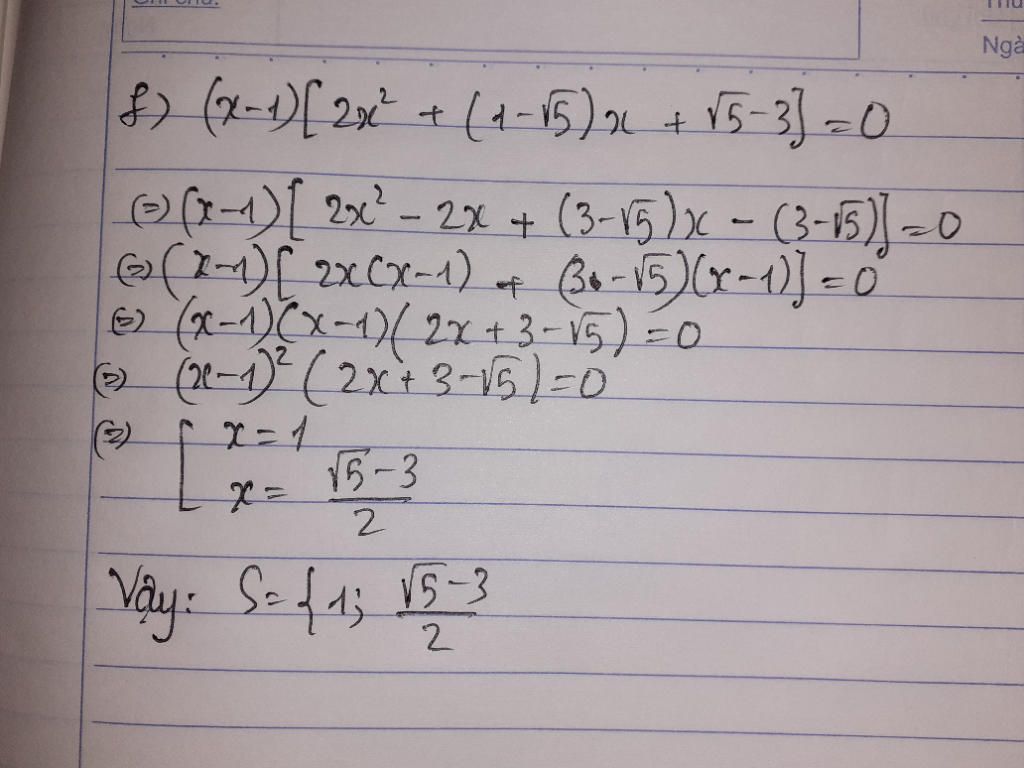 Ghi chú:
Thứ
Ngà
f) (x-1)[2x² + (1-√5)x + √5-3] = 0
(=) (x-1)[ 2x² - 2x + (3-√5)x - (3-√5)] = 0
(=) (x-1)[ 2x(x-1) + (3-√5)(x-1)] = 0
(=) (x-1)(x-1)( 2x + 3 - √5) = 0
(=) (x-1)² ( 2x + 3 - √5) = 0
(=) [ x = 1
x = (√5 - 3)/2
Vậy: S = { 1; (√5 - 3)/2